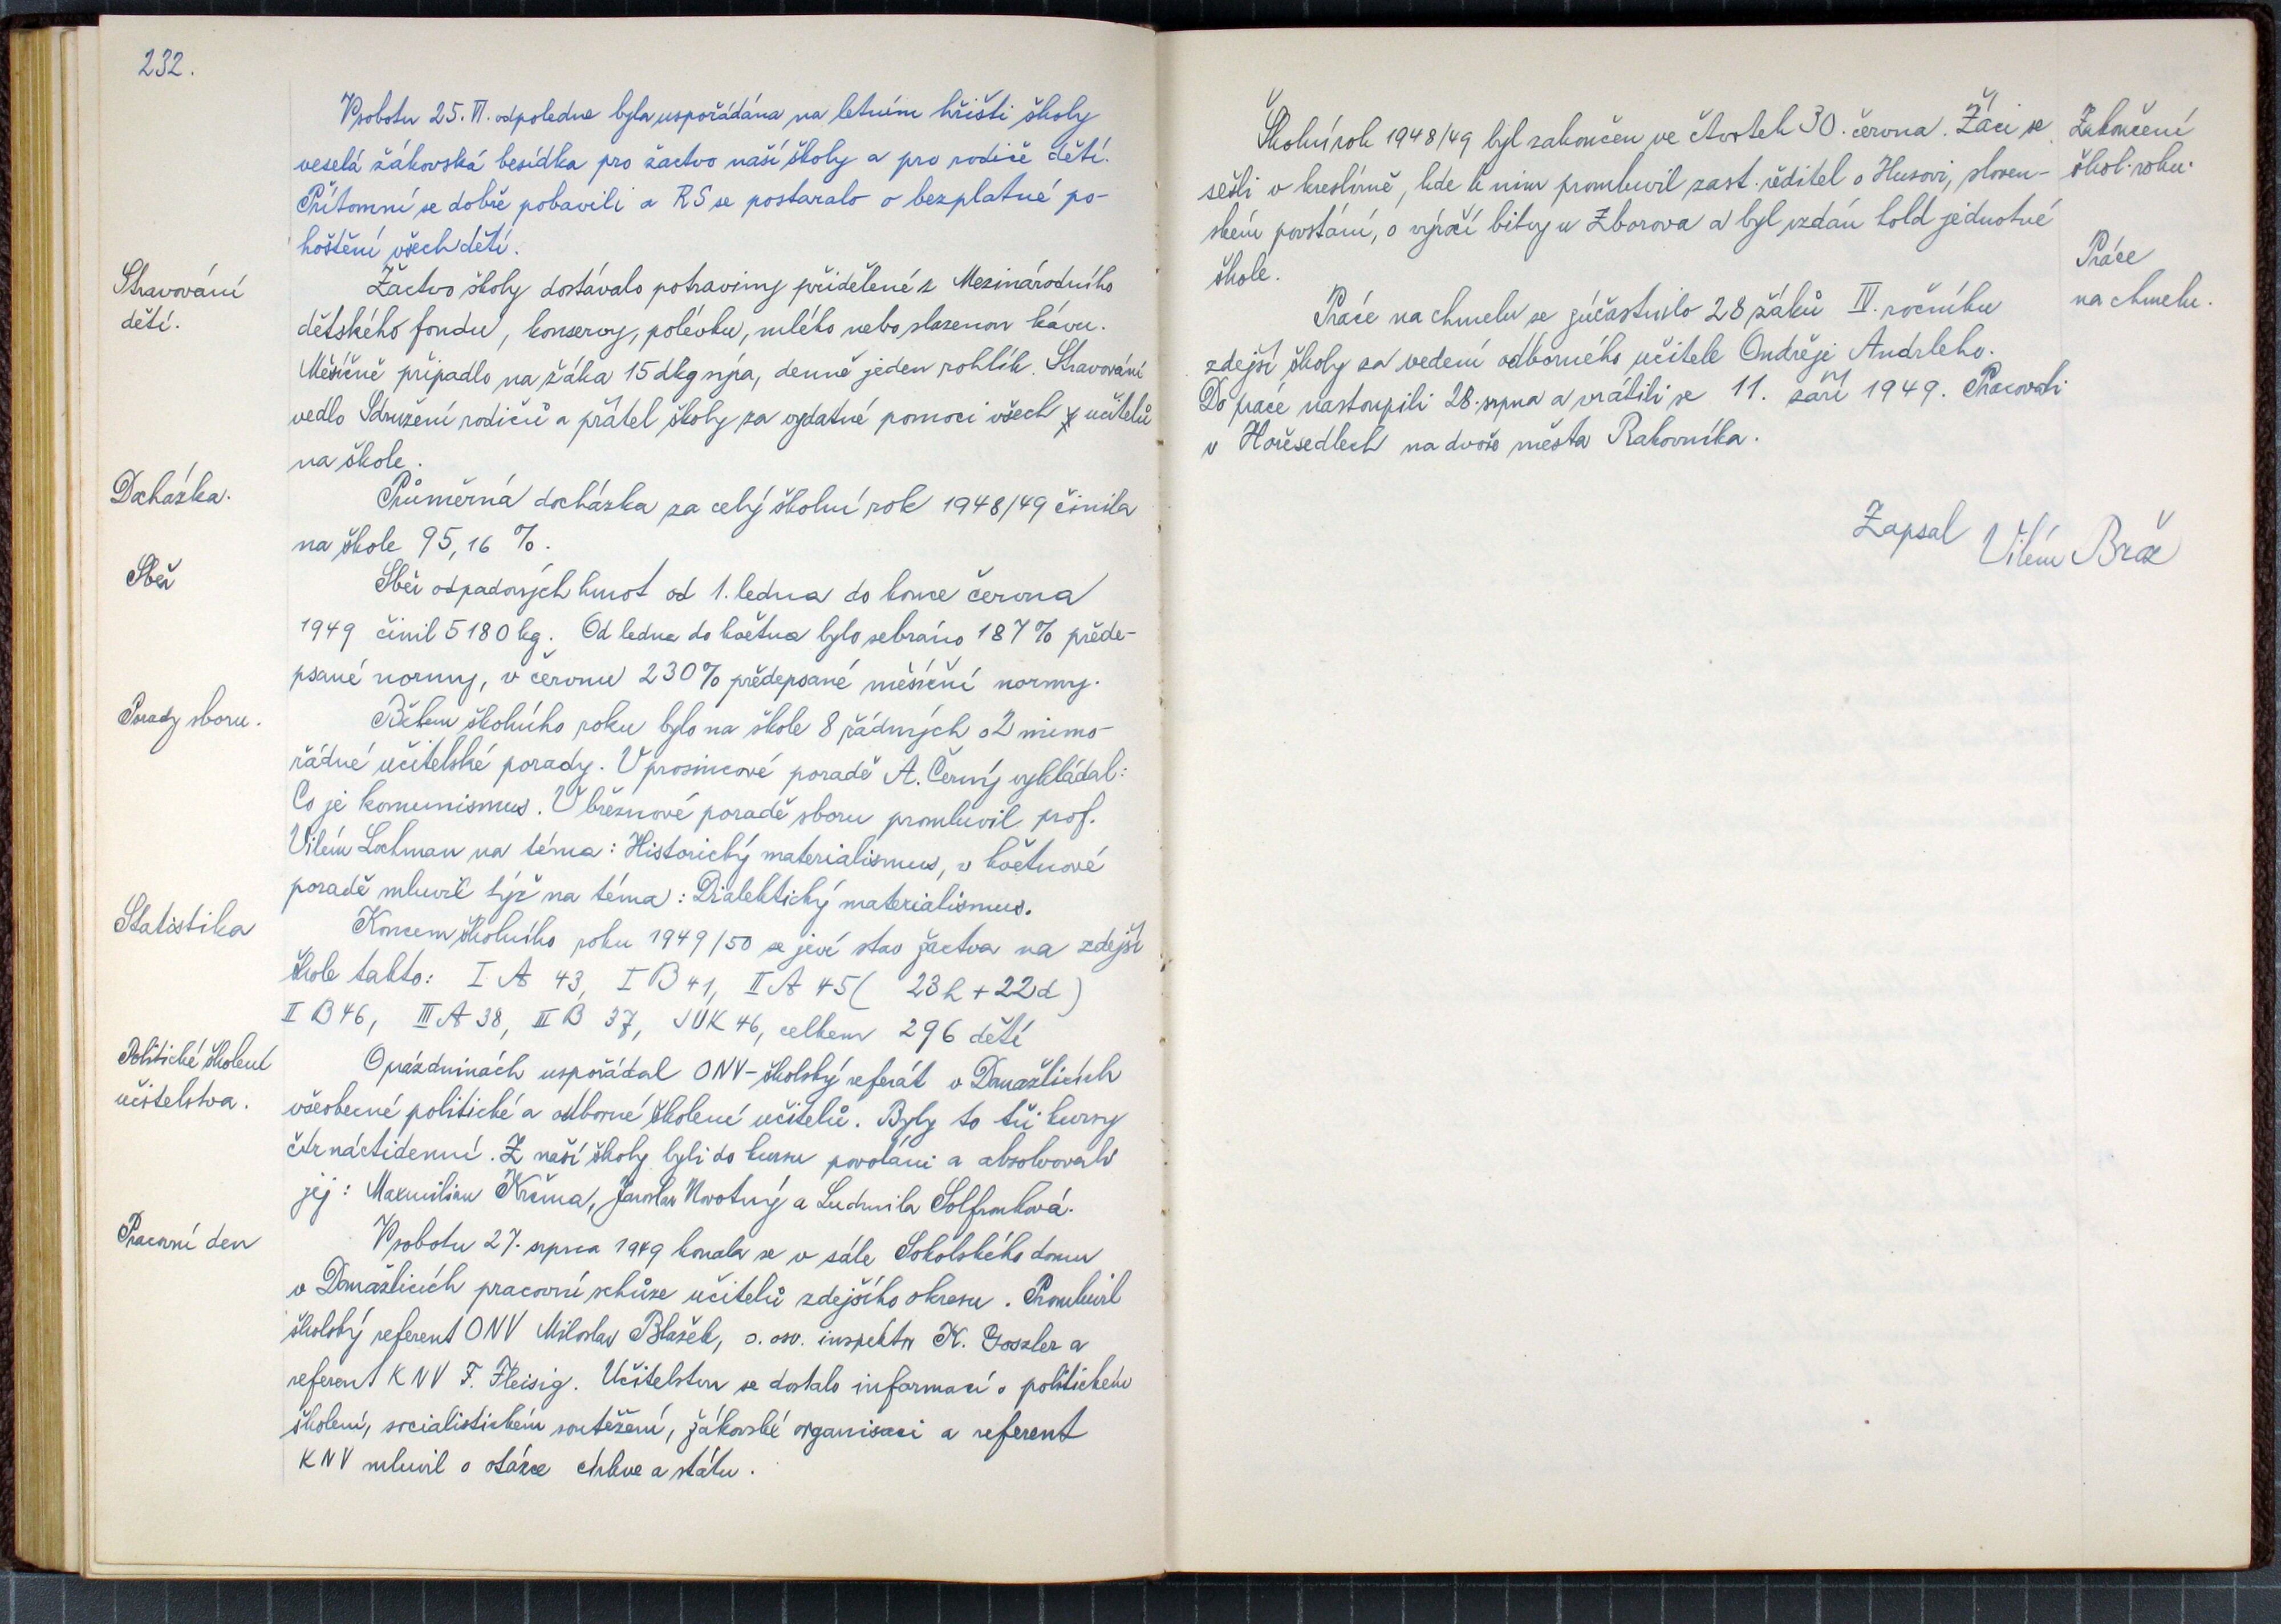 232.
V sobotu 25. VI. odpoledne byla uspořádána na letním hřišti školy
veselá žákovská besídka pro žactvo naší školy a pro rodiče dětí.
Přítomní se dobře pobavili a RS se postaralo o bezplatné po-
hoštění všech dětí.
Stravování
dětí.
Žactvo školy dostávalo potraviny přidělené z Mezinárodního
dětského fondu, konservy, polévku, mléko nebo slazenou kávu.
Měsíčně připadlo na žáka 15 dkg sýra, denně jeden rohlík. Stravování
vedlo Sdružení rodičů a přátel školy za vydatné pomoci všech učitelů
na škole.
Docházka.
Průměrná docházka za celý školní rok 1948/49 činila
na škole 95,16 %.
Sběr
Sběr odpadových hmot od 1. ledna do konce června
1949 činil 5180 kg. Od ledna do května bylo sebráno 187 % přede-
psané normy, v červnu 230 % předepsané měsíční normy.
Porady sboru.
Během školního roku bylo na škole 8 řádných a 2 mimo-
řádné učitelské porady. V prosincové poradě A. Černý vykládal:
Co je komunismus. V březnové poradě sboru promluvil prof.
Vilém Lochman na téma: Historický materialismus, v květnové
poradě mluvil týž na téma: Dialektický materialismus.
Statistika
Koncem školního roku 1949/50 se jeví stav žactva na zdejší
škole takto: I A 43, I B 41, II A 45 ( 23 h + 22 d )
II B 46, III A 38, III B 37, JUK 46, celkem 296 dětí
Politické školení
učitelstva.
O prázdninách uspořádal ONV - školský referát v Domažlicích
všeobecné politické a odborné školení učitelů. Byly to tři kursy
čtrnáctidenní. Z naší školy byli do kursu povoláni a absolvovali
jej: Maxmilian Krčma, Jaroslav Novotný a Ludmila Solfronková.
Pracovní den
V sobotu 27. srpna 1949 konala se v sále Sokolského domu
v Domažlicích pracovní schůze učitelů zdejšího okresu. Promluvil
školský referent ONV Miloslav Blažek, o. osv. inspektor K. Goszler a
referent KNV F. Fleisig. Učitelstvu se dostalo informací o politickém
školení, socialistickém soutěžení, žákovské organisaci a referent
KNV mluvil o otázce církve a státu.
Školní rok 1948/49 byl zakončen ve čtvrtek 30. června. Žáci se
sešli v kreslírně, kde k nim promluvil zast. ředitel o Husovi, sloven-
ském povstání, o výročí bitvy u Zborova a byl vzdán hold jednotné
škole.
Zakončení
škol. roku.
Práce na chmelu se zúčastnilo 28 žáků IV. ročníku
zdejší školy za vedení odborného učitele Ondřeje Andrleho.
Do práce nastoupili 28. srpna a vrátili se 11. září 1949. Pracovali
v Hořesedlech na dvoře města Rakovníka.
Práce
na chmelu.
Zapsal Vilém Brož